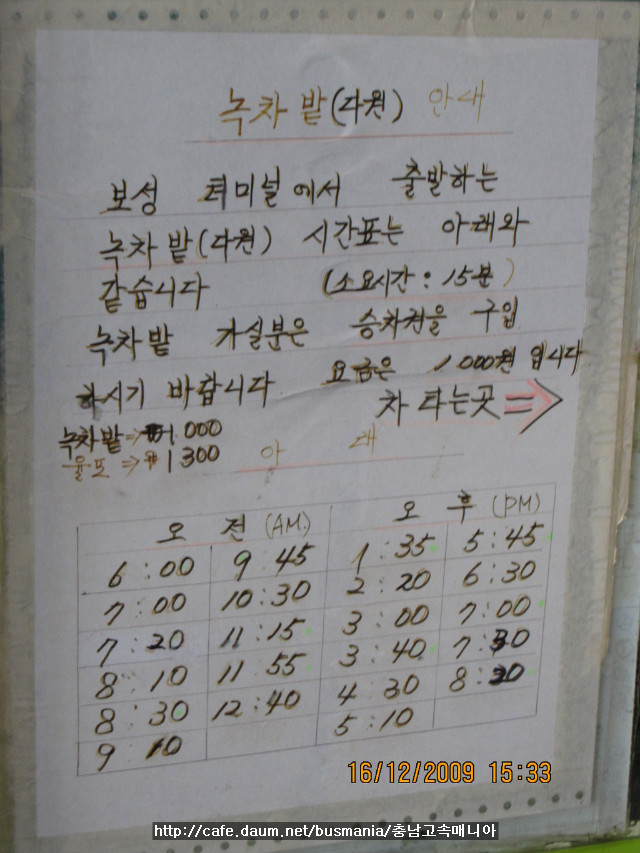 녹차 밭(다원) 안내
보성 터미널에서 출발하는
녹차 밭(다원) 시간표는 아래와
같습니다 (소요시간: 15분)
녹차밭 가실분은 승차권을 구입
하시기 바랍니다 요금은 1000원 입니다
차 타는곳 ⇒
녹차밭 ⇒ ₩1000
율포 ⇒ ₩1300
아 래
오 전 (AM.) 오 후 (PM)
6:00 9:45 1:35 5:45
7:00 10:30 2:20 6:30
7:20 11:15 3:00 7:00
8:10 11:55 3:40 7:30
8:30 12:40 4:30 8:20
9:10 5:10
16/12/2009 15:33
http://cafe.daum.net/busmania/충남고속매니아